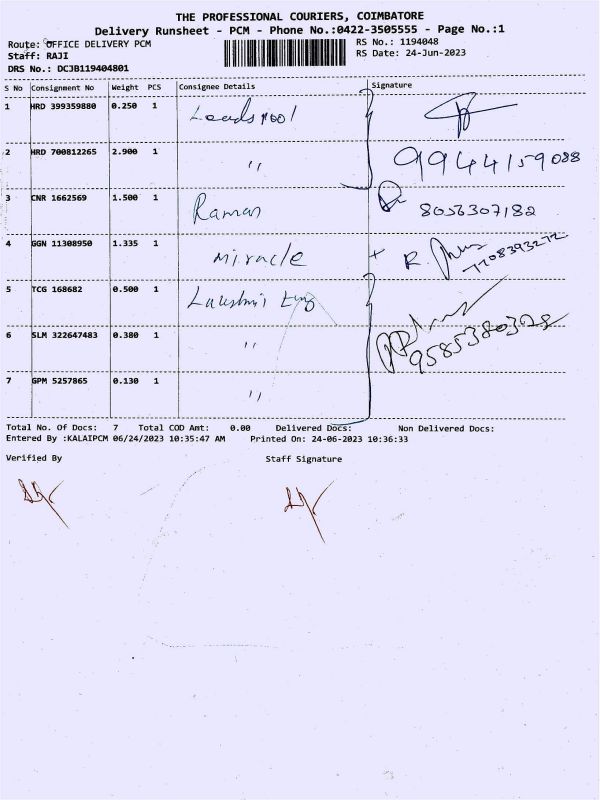 THE PROFESSIONAL COURIERS, COIMBATORE
Delivery Runsheet - PCM - Phone No.:0422-3505555 - Page No.:1
Route: OFFICE DELIVERY PCM
RS No.: 1194048
Staff: RAJI
RS Date: 24-Jun-2023
DRS No.: DCJB119404801
S No Consignment No Weight PCS Consignee Details Signature
1 HRD 399359880 0.250 1 Leads pool
2 HRD 700812265 2.900 1 " 9944159088
3 CNR 1662569 1.500 1 Raman 8056307182
4 GGN 11308950 1.335 1 Miracle R. 7708393272
5 TCG 168682 0.500 1 Lakshmi Eng
6 SLM 322647483 0.380 1 " 9585380328
7 GPM 5257865 0.130 1 "
Total No. Of Docs: 7 Total COD Amt: 0.00 Delivered Docs: Non Delivered Docs:
Entered By :KALAIPCM 06/24/2023 10:35:47 AM Printed On: 24-06-2023 10:36:33
Verified By Staff Signature